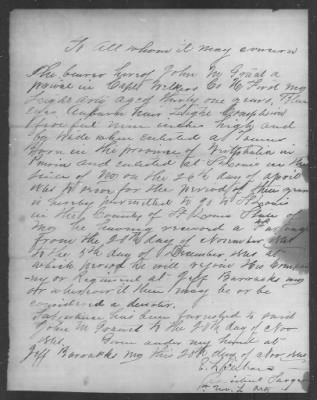 To All whom it may concern
The bearer hereof John M
private in Capt Welkers Co H First Mo
Light Art aged thirty one years, Blue
eyes Auburn hair Light Complexion
five feet nine inches high and
by trade when enlisted a
Born in the province of Westphalia in
and enlisted at St Louis in the
State of Mo on the 26th day of April
1861 to serve for the period of three years
is hereby permitted to go to St Louis
in the County of St Louis State of
Mo he having received a
from the 28th day of November 1861
to the 5th day of December 1861 at
which period he will rejoin his Compa
ny or Regiment at Jeff Barracks Mo
or wherever it then may be or be
considered a deserter.
has been furnished to said
John M to the 28th day of Nov
1861. Given under my hand at
Jeff Barracks Mo this 28th day of Nov 1861